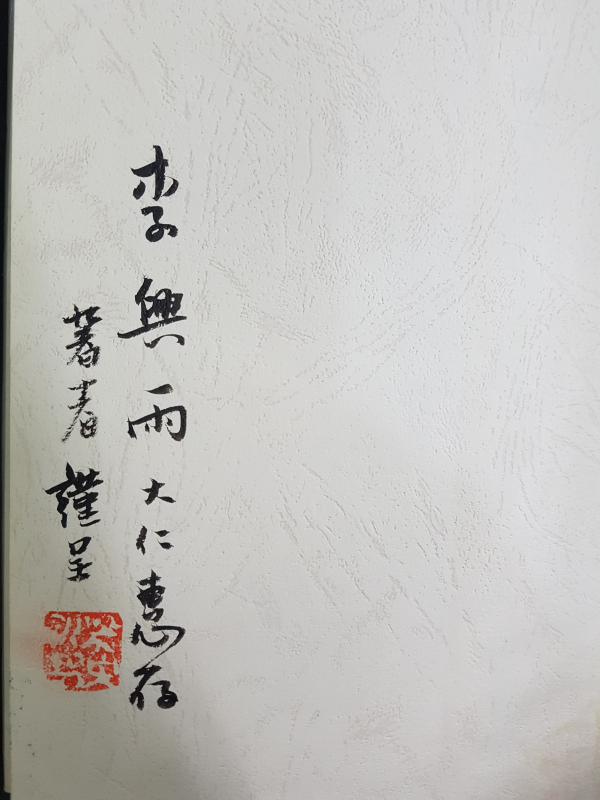 李興雨大仁惠存
著者謹呈